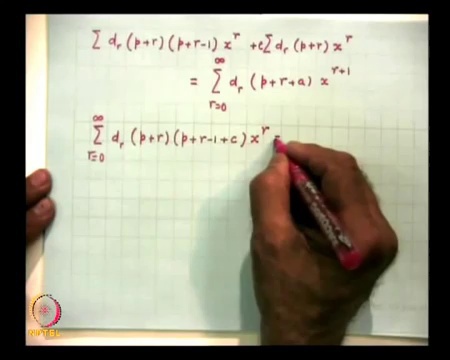 ∑ d_r (p+r) (p+r-1) x^r + c∑ d_r (p+r) x^r
= ∑_{r=0}^{∞} d_r (p+r+a) x^{r+1}
∑_{r=0}^{∞} d_r (p+r) (p+r-1+c) x^r =
NPTEL